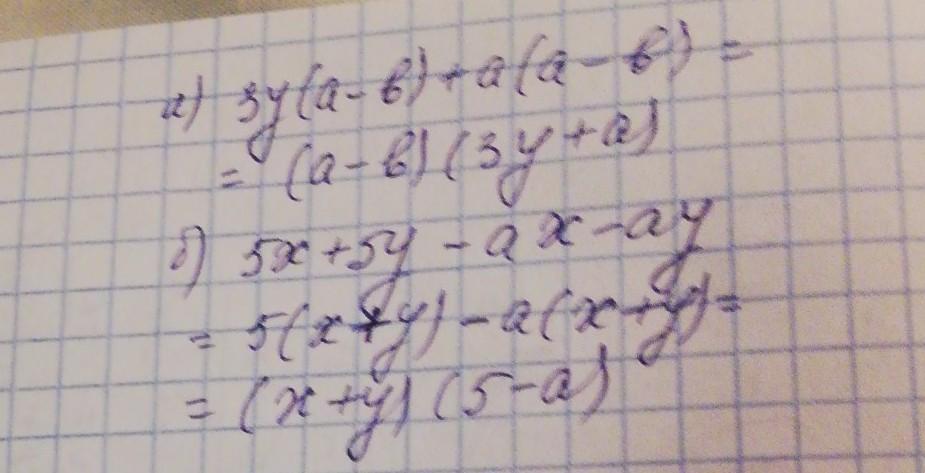 а) 3y(a-b)+a(a-b)=
= (a-b)(3y+a)
б) 5x+5y-ax-ay
= 5(x+y)-a(x+y)=
= (x+y)(5-a)